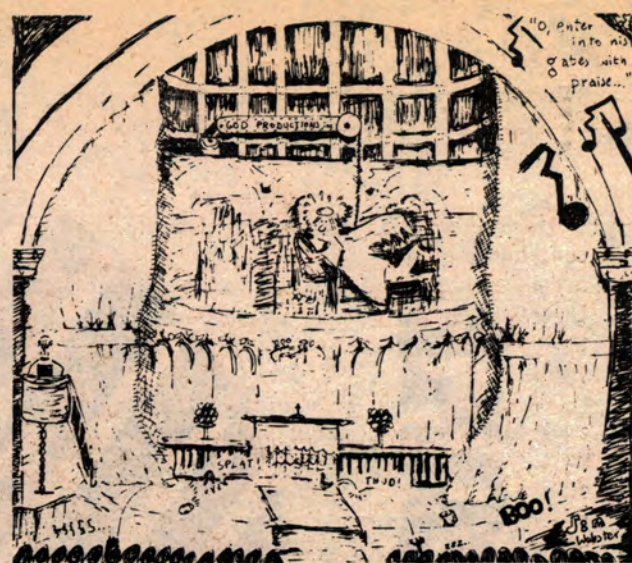 "O, enter
into his
gates with
praise..."
GOD PRODUCTIONS
SPLAT!
THUD!
HISSS...
BOO!
ZZZ...
Webster